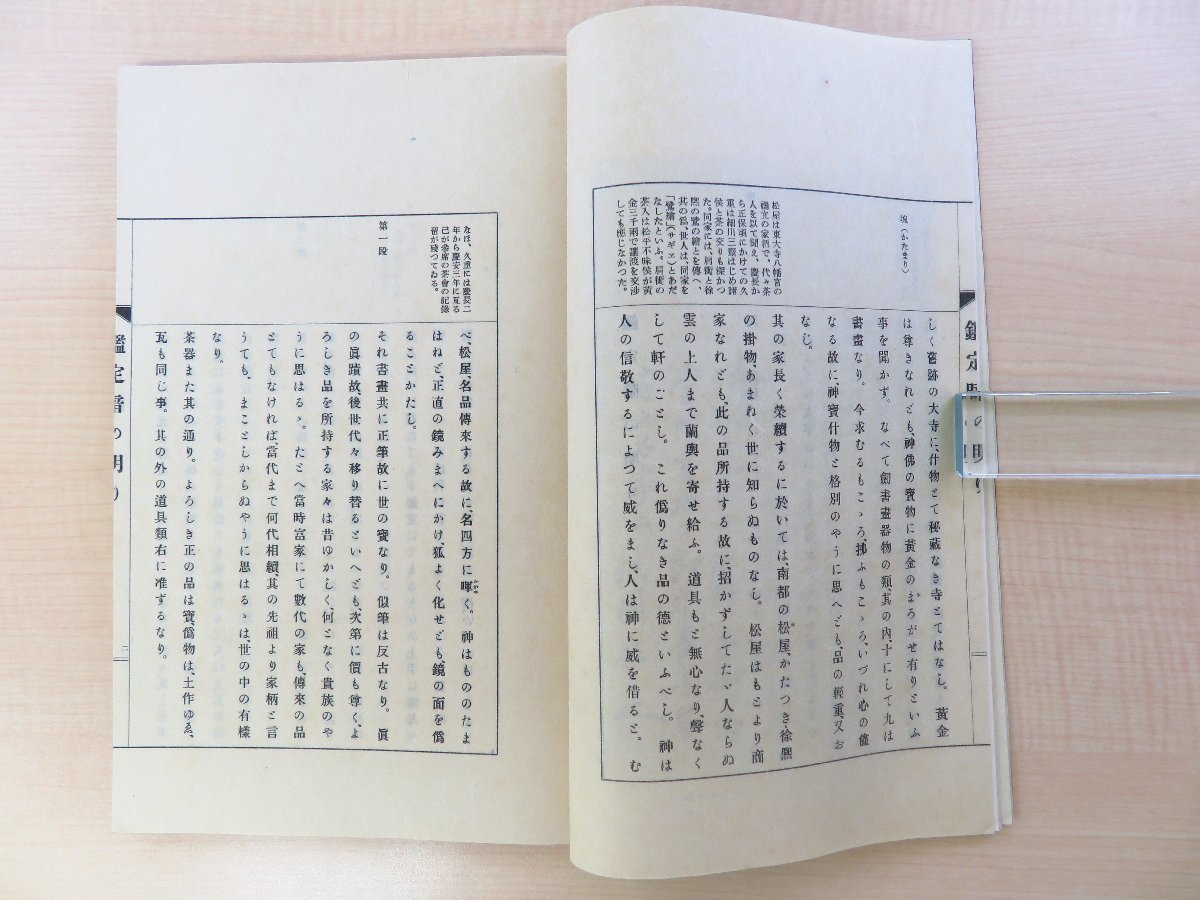 塊(かたまり)
松屋は東大寺八幡宮の
禰宜の家柄で、代々茶
人を以て聞え、慶長か
ら正保頃にかけての久
重は細川三齋はじめ諸
侯と茶の交りも深かつ
た。同家には、肩衝と徐
熙の鷺の繪とを傳へ、
其の爲、世人は、同家を
「鷺繪(サギヱ)」とあだ
なしたといふ。肩衝の
茶入は松平不昧侯が黄
金三千兩で讓渡を交渉
しても應じなかつた。
しく舊跡の大寺に、什物とて秘藏なき寺とてはなし。黃金
は尊きなれども、神佛の寶物に黃金のまろがせ有りといふ
事を聞かず。なべて劍書畫器物の類、其の内、十にして九は
書畫なり。今求むるもこゝろ、拂ふもこゝろ、いづれ心の儘
なる故に、神寶什物と格別のやうに思へども、品の輕重、又お
なじ。
其の家長く榮續するに於いては、南都の松屋、かたつき、徐熙
の掛物、あまねく世に知らぬものなし。松屋はもとより商
家なれども、此の品所持する故に、招かずしてたゞ人ならぬ
雲の上人まで蘭輿を寄せ給ふ。道具もと無心なり、聲なく
して軒のごとし。これ僞りなき品の德といふべし。神は
人の信敬するによつて威をまし、人は神に威を借ると。む
なほ、久重には慶長二
年から慶安三年に亙る
己が參席の茶會の記錄
留が殘つてゐる。
第一段
べ、松屋、名品傳來する故に、名四方に暉く。神はもののたま
はねど、正直の鏡みまへにかけ、狐よく化せども、鏡の面を僞
ることかたし。
それ書畫共に正筆故に世の寶なり。似筆は反古なり。眞
の眞蹟故、後世代々移り替るといへども、次第に價も尊く、よ
ろしき品を所持する家々は昔ゆかしく、何となく貴族のや
うに思はるゝ。たとへ當時富家にて數代の家も、傳來の品
とてもなければ、當代まで何代相續、其の先祖より家柄と言
うても、まことしからぬやうに思はるゝは、世の中の有樣
なり。
茶器また其の通り。よろしき正の品は寶、僞物は、土作ゆゑ、
瓦も同じ事。其の外の道具類右に准ずるなり。
鑑定暗の明り
二